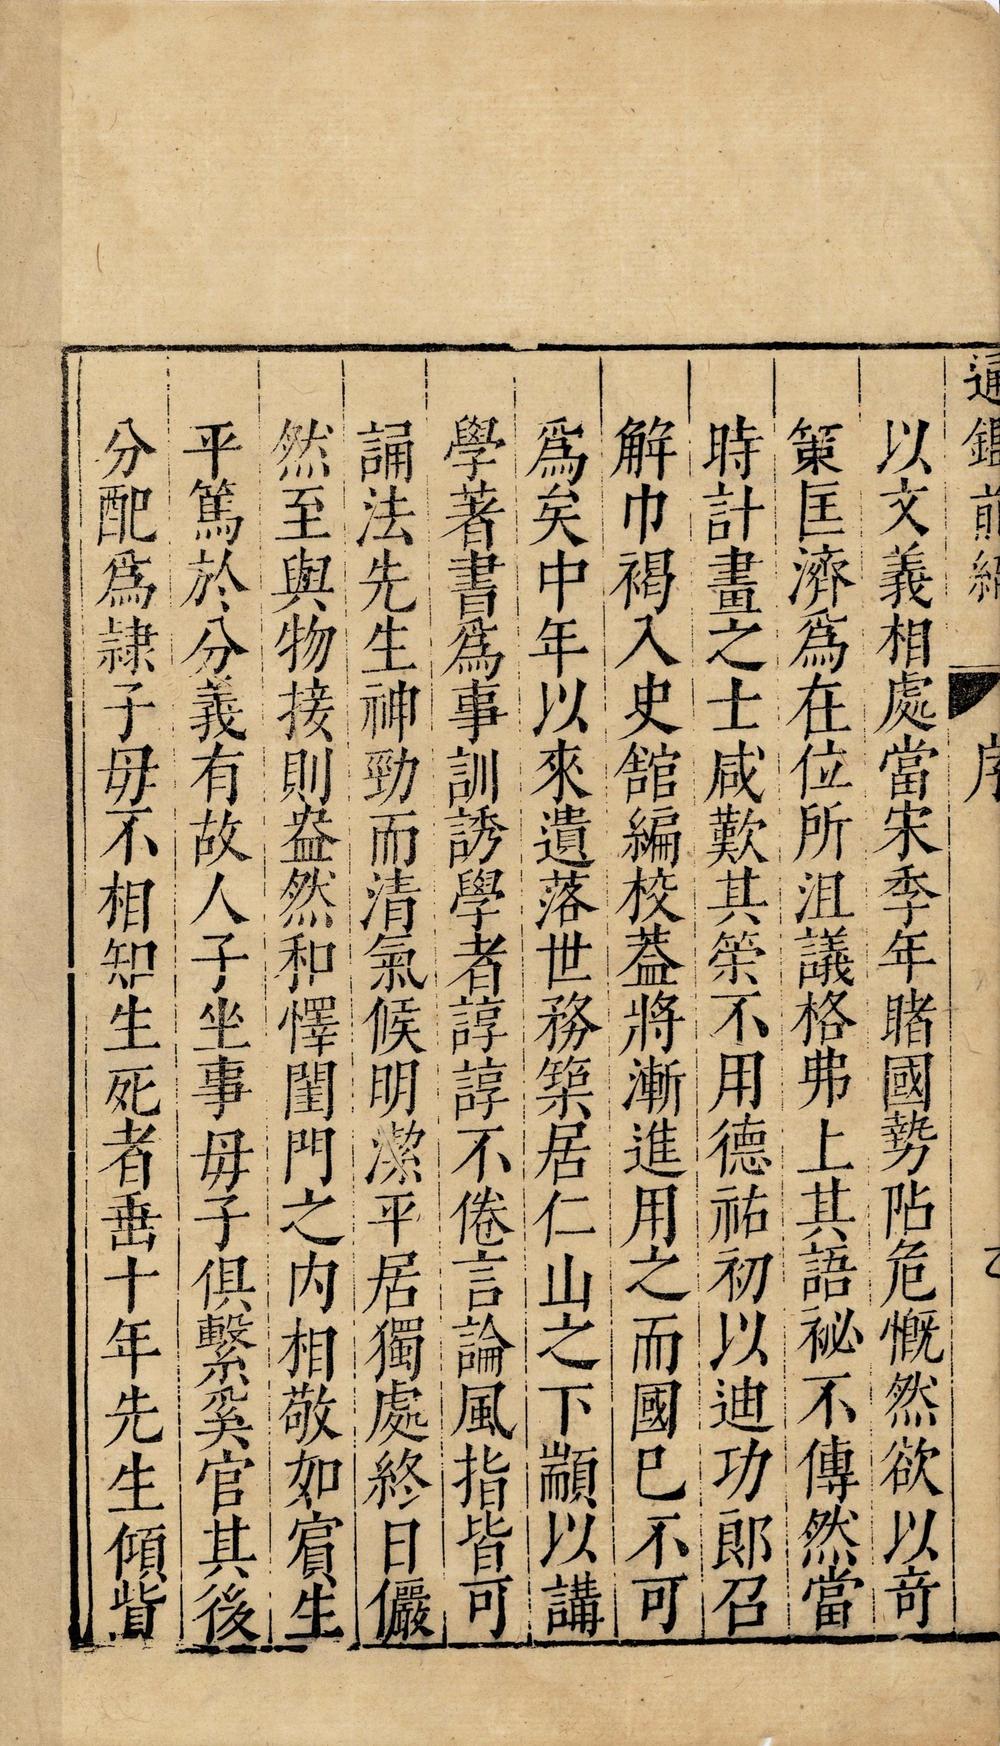 通鑑前編 序
以文義相處當宋季年睹國勢阽危慨然欲以奇
策匡濟爲在位所沮議格弗上其語祕不傳然當
時計畫之士咸歎其策不用德祐初以迪功郎召
解巾褐入史舘編校葢將漸進用之而國已不可
爲矣中年以來遺落世務築居仁山之下顓以講
學著書爲事訓誘學者諄諄不倦言論風指皆可
誦法先生神勁而清氣候明潔平居獨處終日儼
然至與物接則盎然和懌閨門之内相敬如賓生
平篤於分義有故人子坐事毋子俱繫奚官其後
分配爲隷子毋不相知生死者垂十年先生傾貲